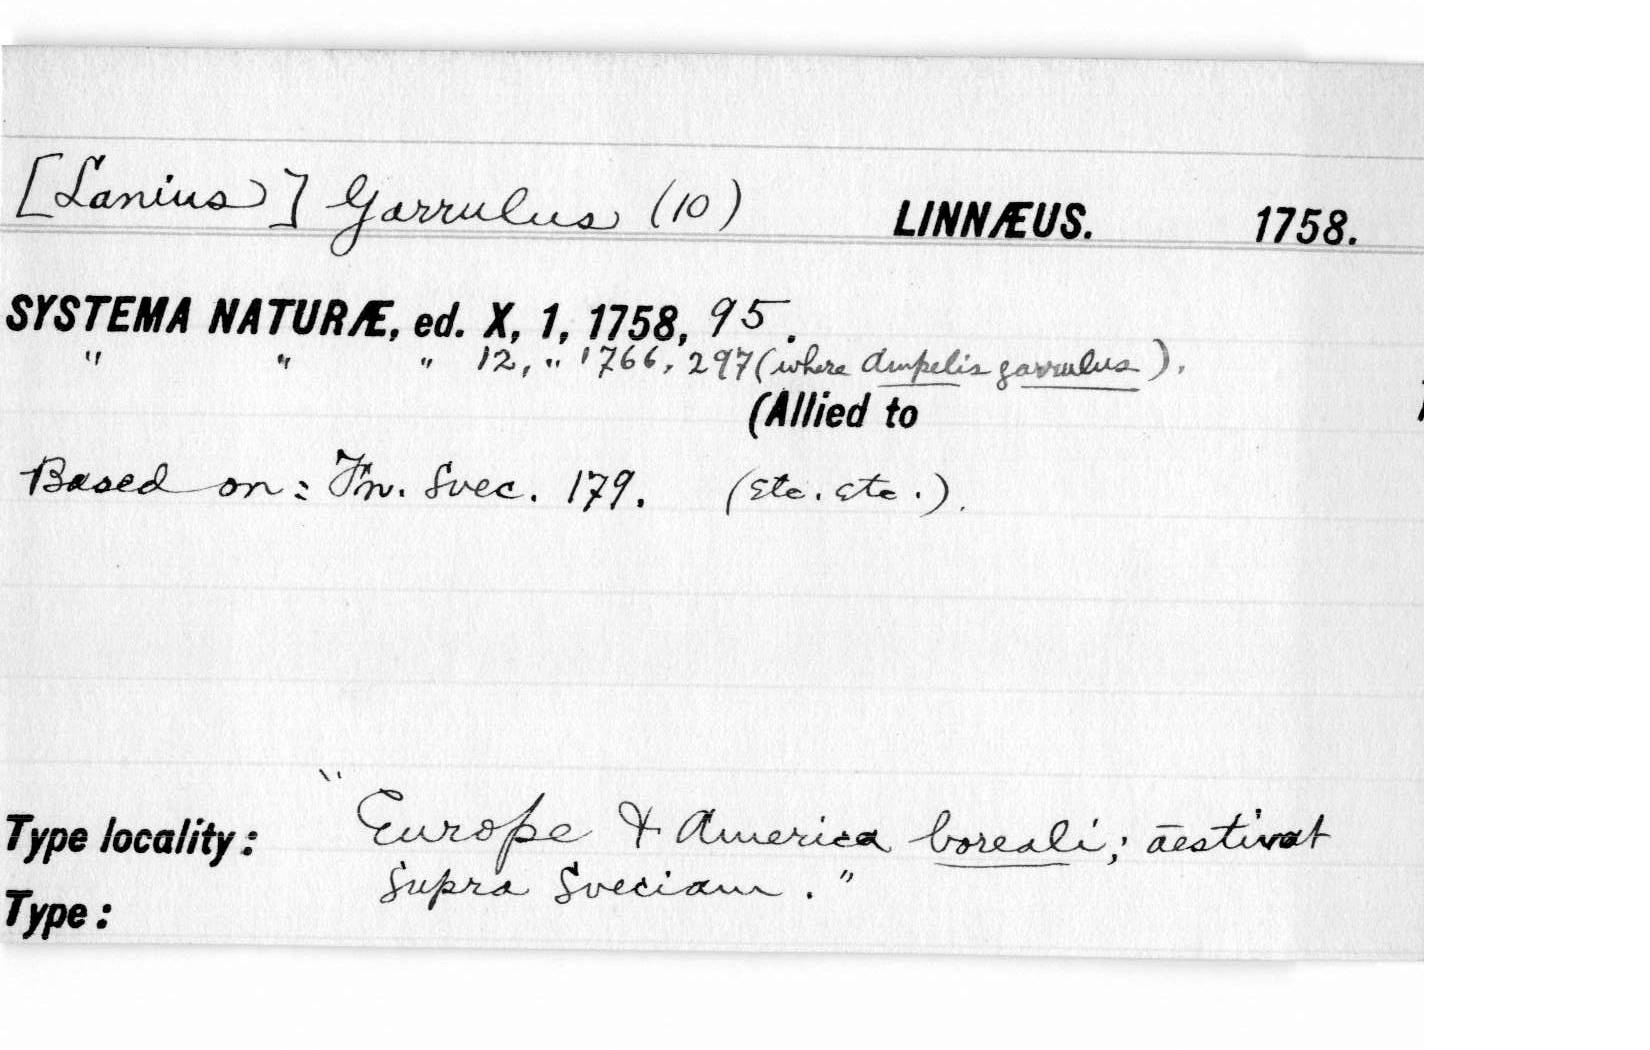 [Lanius] Garrulus (10) LINNÆUS. 1758.
SYSTEMA NATURÆ, ed. X, 1, 1758, 95.
" " " 12, " 1766, 297 (where Ampelis garrulus).
(Allied to
Based on: Fn. Svec. 179. (etc. etc.).
Type locality: "Europe & America boreali; aestivat
supra Sveciam."
Type: